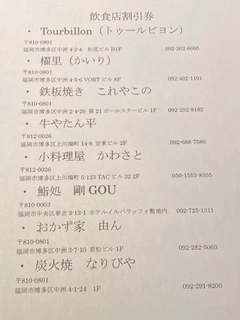 飲食店割引券
・ Tourbillon（トゥールビヨン）
〒810-0801
福岡市博多区中洲 4-2-4 松尾ビル B1F 092-262-6605
・ 櫂里（かいり）
〒810-0801
福岡市博多区中洲 4-5-6 VORT ビル 8F 092-402-1101
・ 鉄板焼き これやこの
〒810-0801
福岡市博多区中洲 2-4-20 第 21 ポールスタービル 1F 092-292-8182
・ 牛やたん平
〒812-0026
福岡市博多区上川端町 14-8 安東ビル 2F 092-688-7586
・ 小料理屋 かわさと
〒812-0026
福岡市博多区上川端町 5-123 TAC ビル 32 2F 050-1553-8205
・ 鮨処 剛 GOU
〒810-0003
福岡市中央区春吉 3-13-1 ホテルイルパラッツォ敷地内 092-725-1311
・ おかず家 由ん
〒810-0801
福岡市博多区中洲 3-7-10 若松ビル 1F 092-282-5060
・ 炭火焼 なりびや
〒810-0801
福岡市博多区中洲 4-1-24 1F 092-291-8200